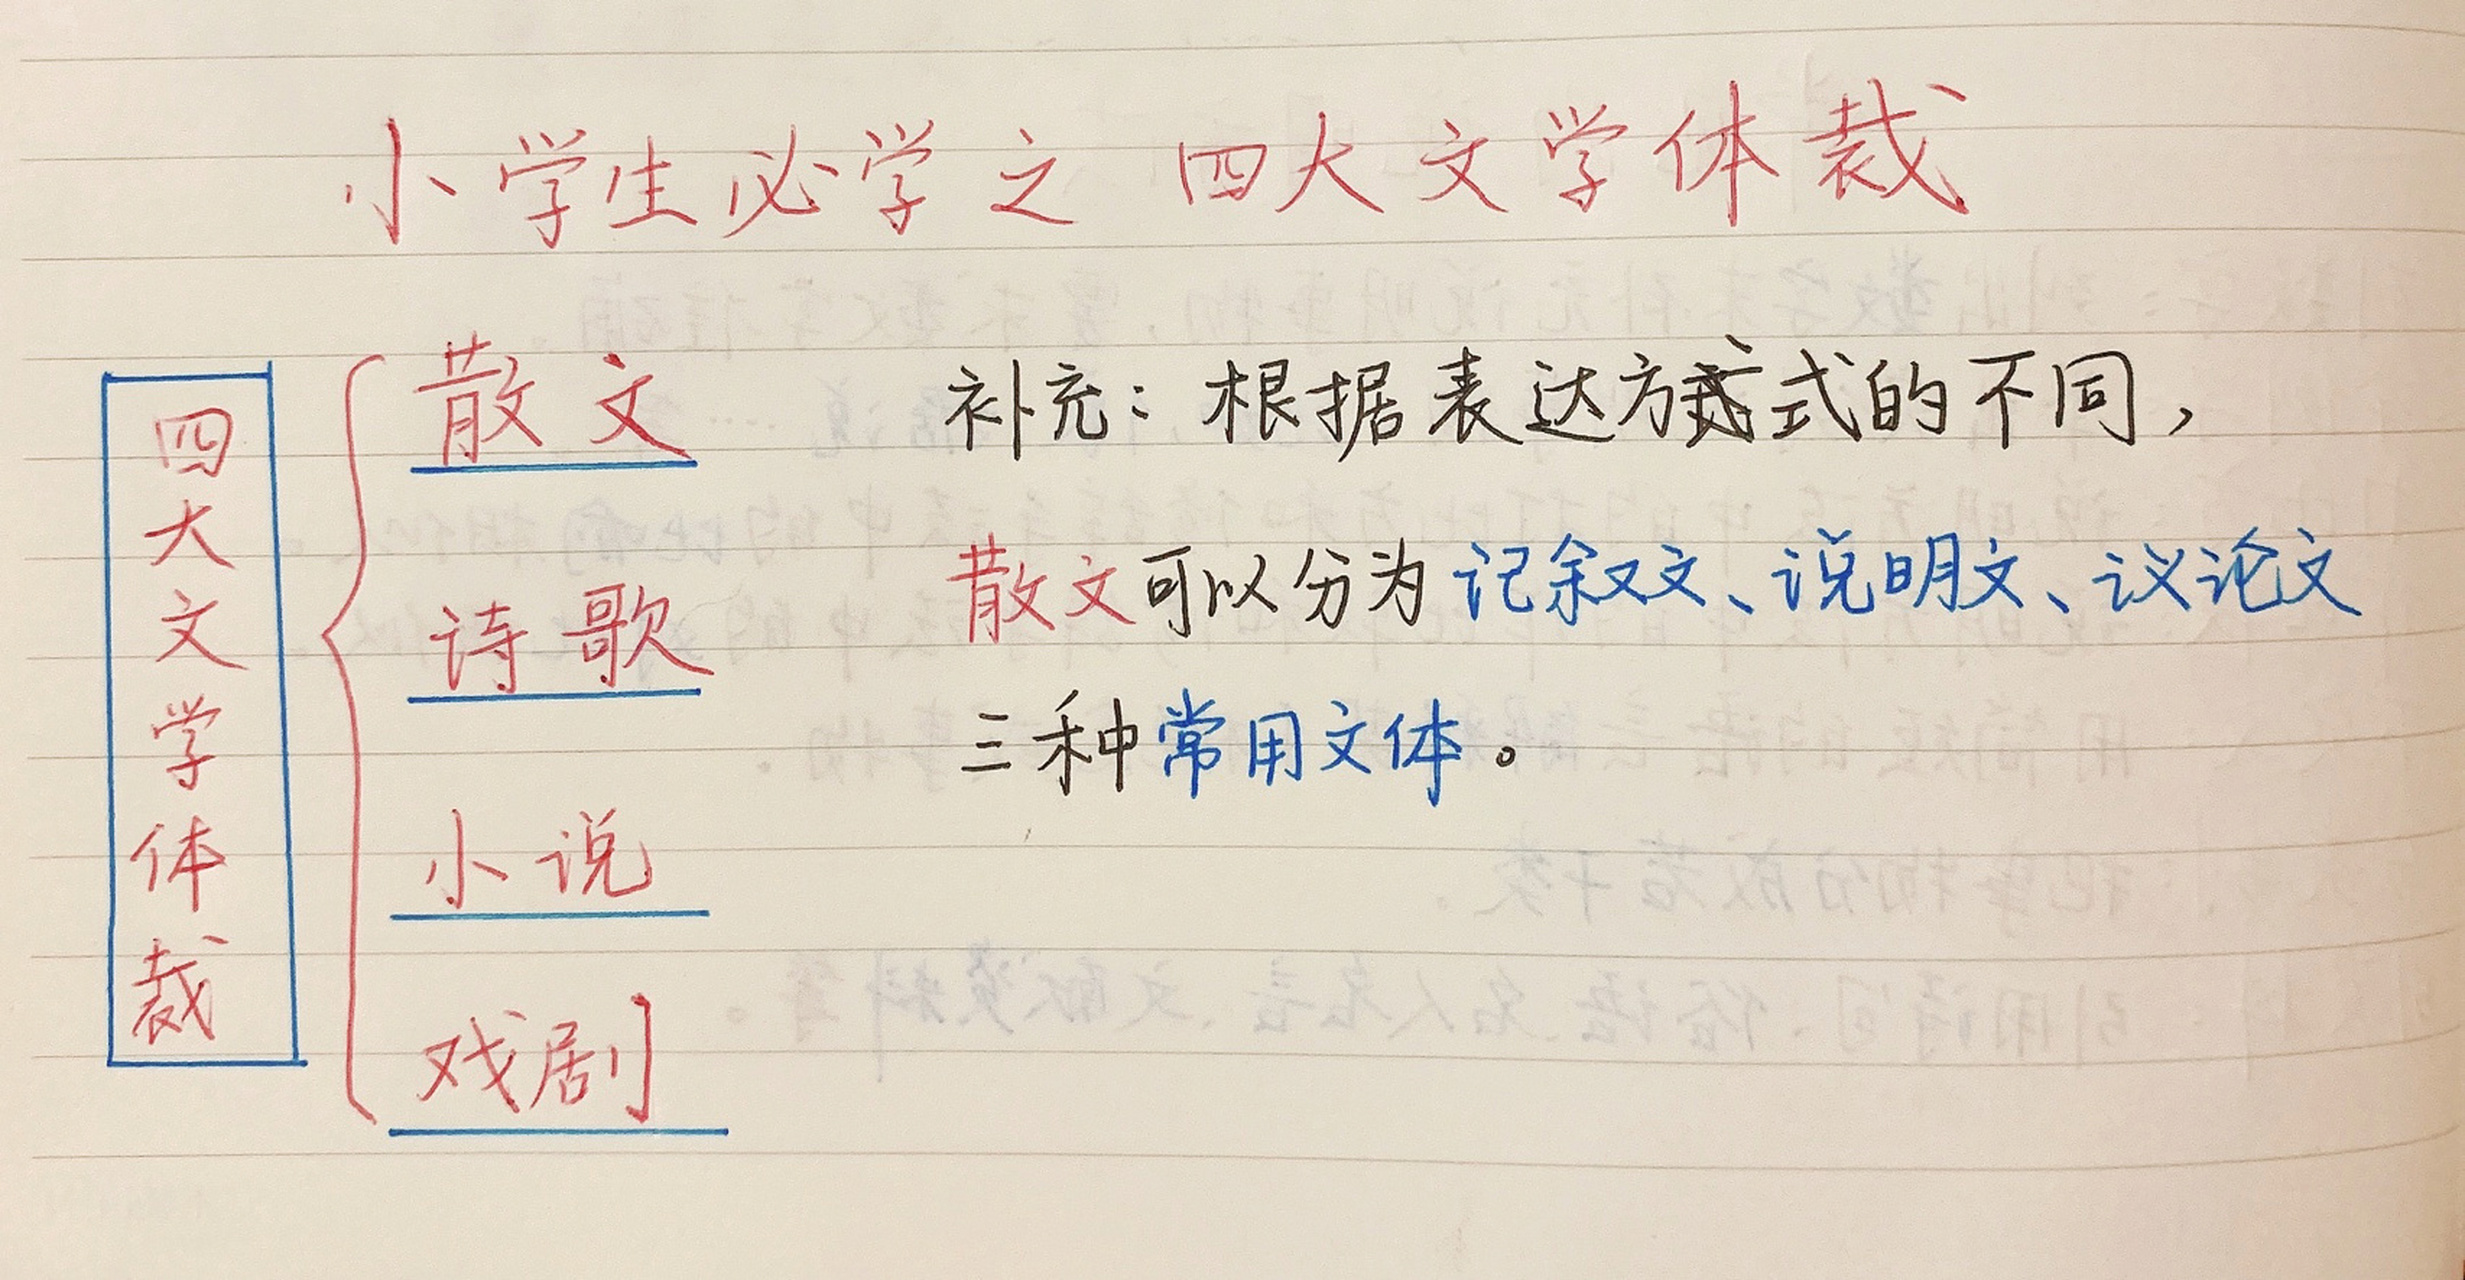 小学生必学之 四大文学体裁
四大文学体裁
散文
诗歌
小说
戏剧
补充：根据表达方式的不同，
散文可以分为记叙文、说明文、议论文
三种常用文体。